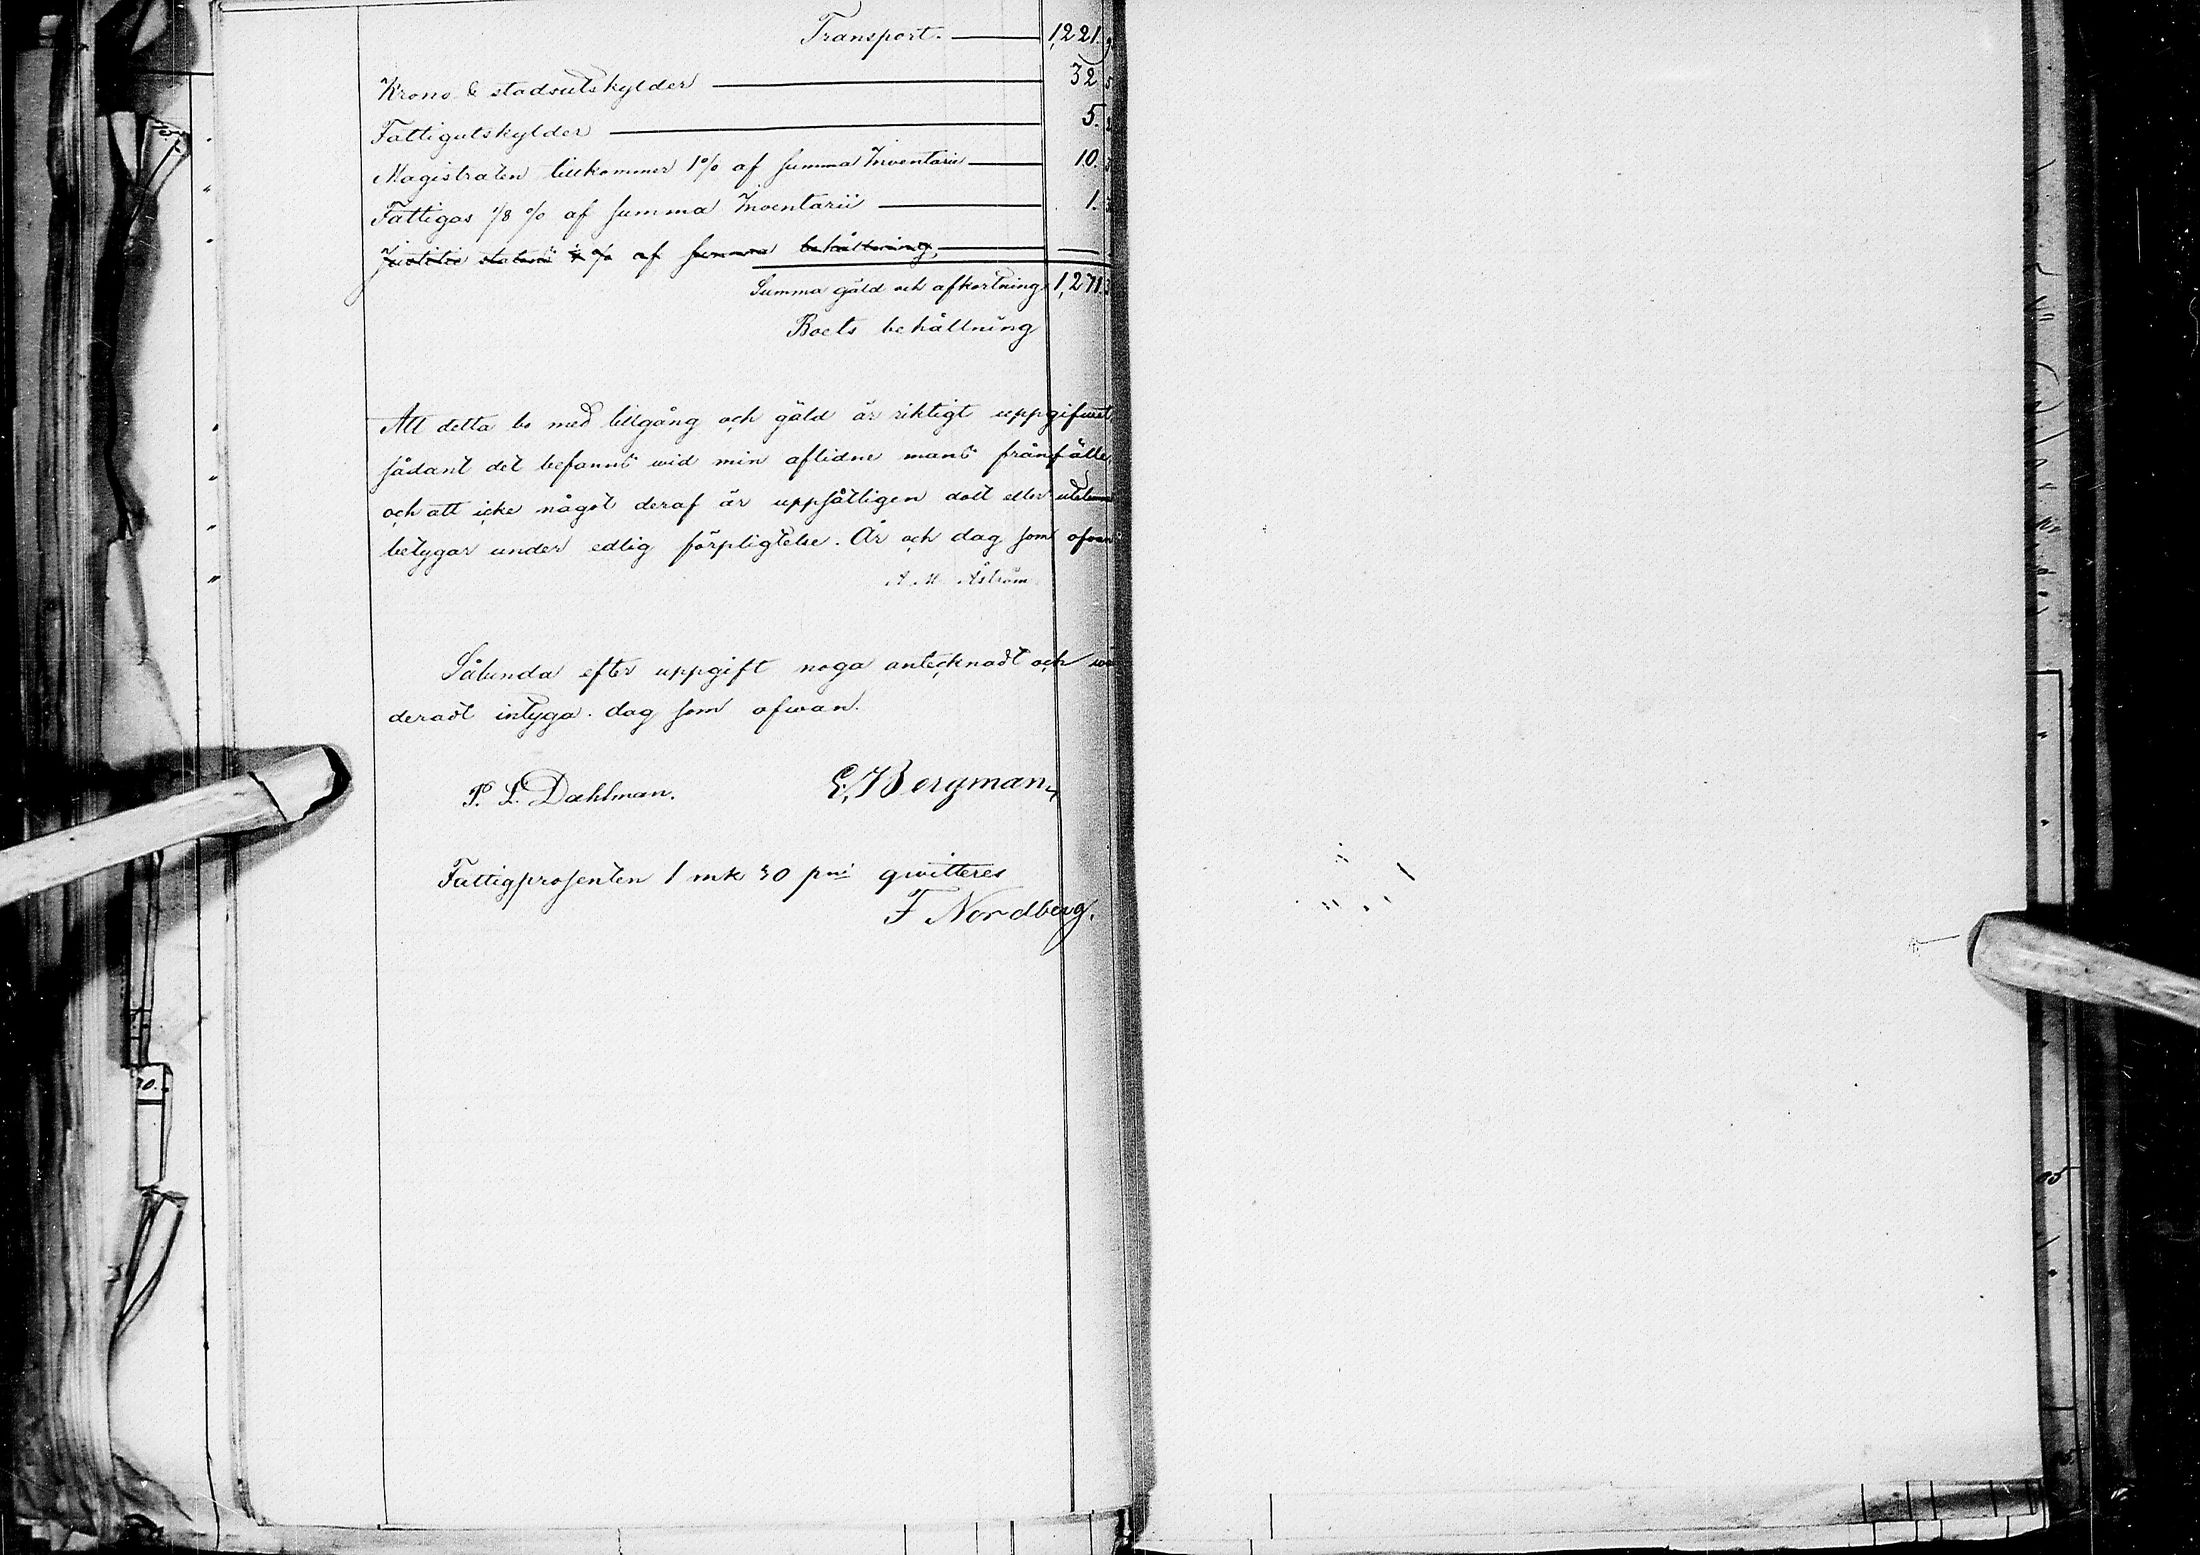 Transport. 1,221.
Krono & stadsutskylder 32
Fattigutskylder 5.
Magistraten tillkommer 1% af summa Inventarii 10.
Fattigas 1/8 % af summa Inventarii 1.
af summa behållning
Summa gäld och afkortning 1,271.
Boets behållning
Att detta bo med tillgång och gäld är riktigt uppgifwet,
sådant det befanns wid min aflidne mans frånfälle,
och att icke något deraf är uppsåtligen dolt eller
betygar under edlig förpligtelse. År och dag som ofwan
A M Åström
Sålunda efter uppgift noga antecknadt och wä
deradt intyga. dag som ofwan.
P. L. Dahlman. E. J Bergman,
Fattigprosenten 1 mk 30 pni qwitteres
F Nordberg.